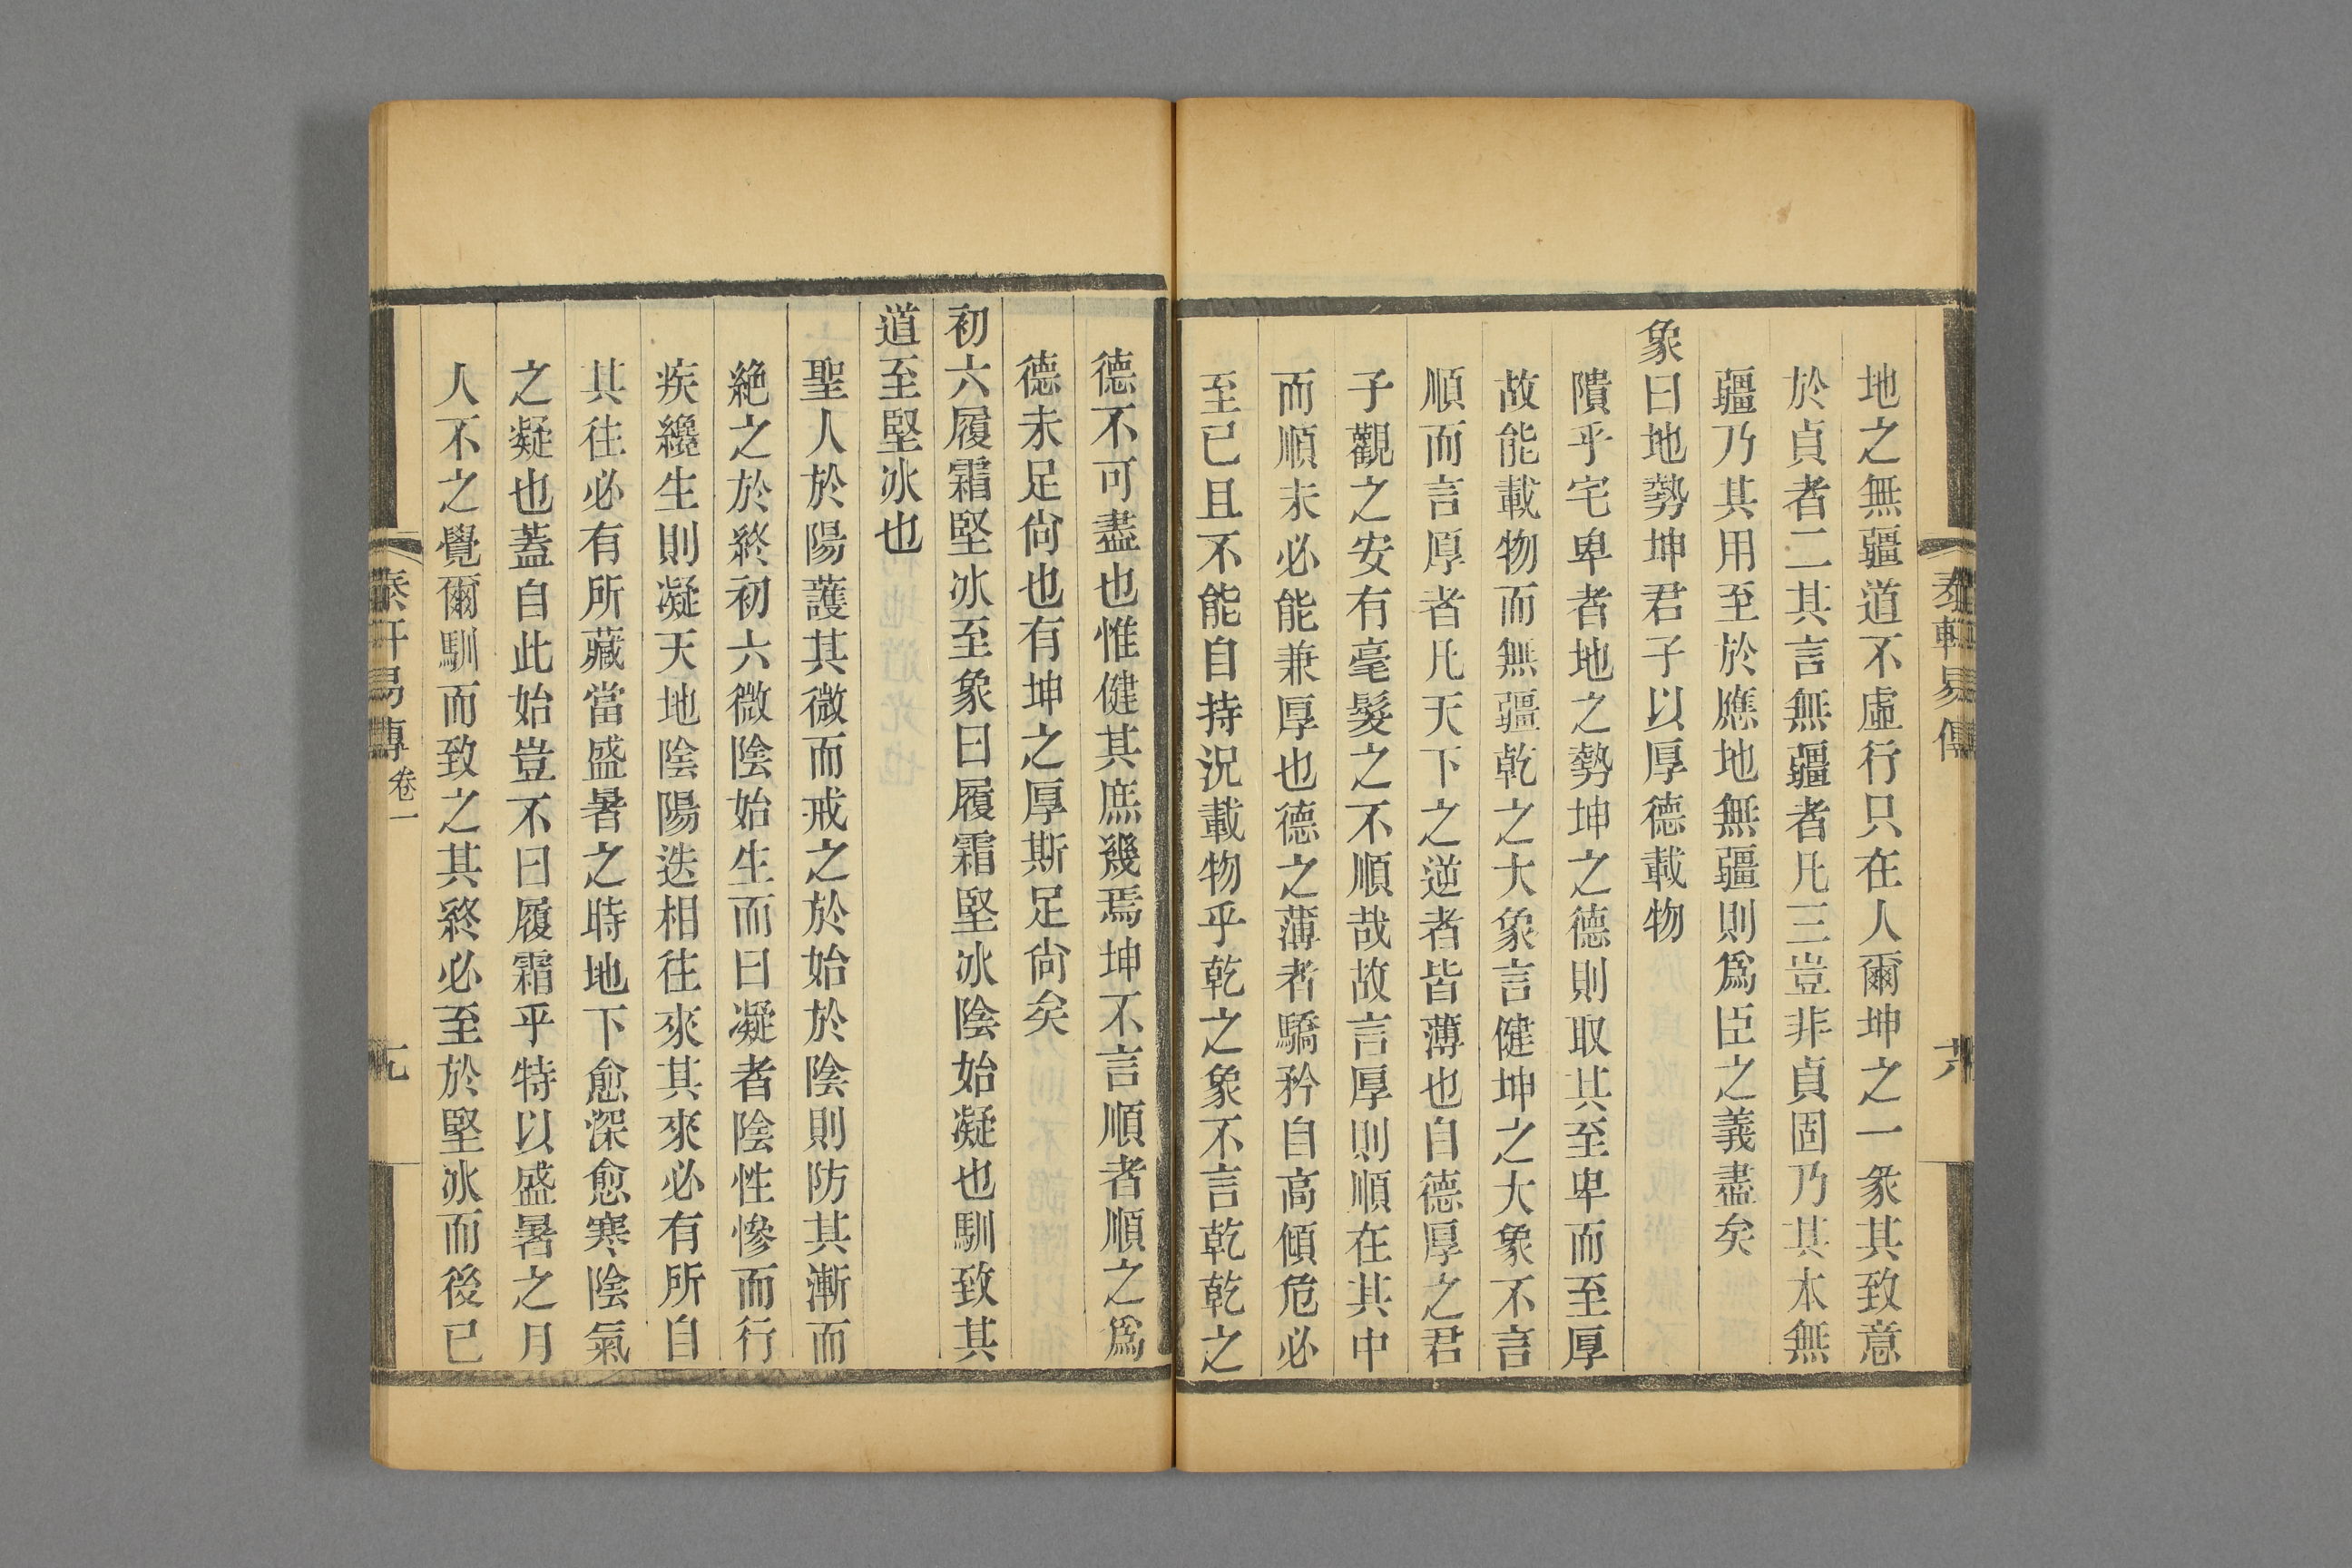 地之無疆道不虛行只在人爾坤之一彖其致意
於貞者二其言無疆者凡三豈非貞固乃其本無
疆乃其用至於應地無疆則爲臣之義盡矣
象曰地勢坤君子以厚德載物
隤乎宅卑者地之勢坤之德則取其至卑而至厚
故能載物而無疆乾之大象言健坤之大象不言
順而言厚者凡天下之逆者皆薄也自德厚之君
子觀之安有毫髮之不順哉故言厚則順在其中
而順未必能兼厚也德之薄者驕矜自高傾危必
至已且不能自持況載物乎乾之象不言乾乾之
德不可盡也惟健其庶幾焉坤不言順者順之爲
德未足尙也有坤之厚斯足尙矣
初六履霜堅冰至象曰履霜堅冰陰始凝也馴致其
道至堅冰也
聖人於陽護其微而戒之於始於陰則防其漸而
絶之於終初六微陰始生而曰凝者陰性慘而行
疾纔生則凝天地陰陽迭相往來其來必有所自
其往必有所藏當盛暑之時地下愈深愈寒陰氣
之凝也蓋自此始豈不曰履霜乎特以盛暑之月
人不之覺爾馴而致之其終必至於堅冰而後已
易傳 卷一